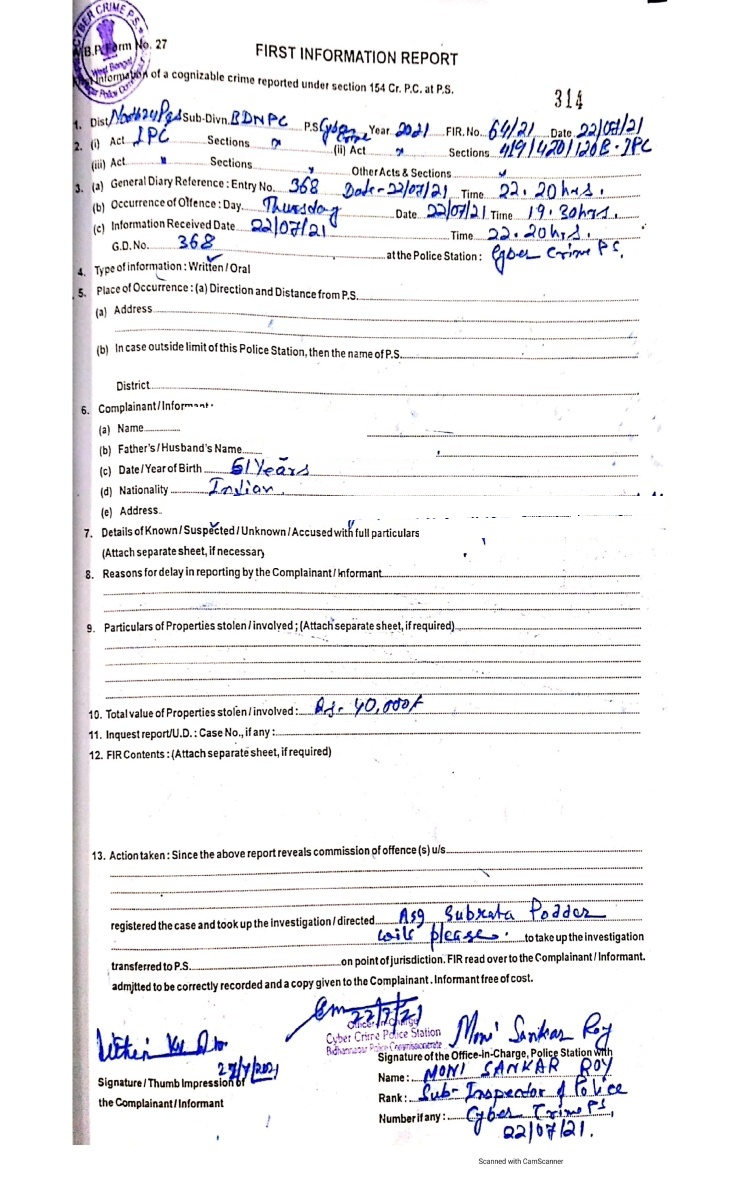 CYBER CRIME P.S.
West Bengal
B.P. Form No. 27
FIRST INFORMATION REPORT
First Information of a cognizable crime reported under section 154 Cr. P.C. at P.S.
314
1. Dist North 24 Pgs Sub-Divn. BDNPC P.S Cyber Crime Year 2021 FIR. No. 64/21 Date 22/07/21
2. (i) Act IPC Sections (ii) Act Sections 419/420/120B. IPC
(iii) Act Sections Other Acts & Sections
3. (a) General Diary Reference : Entry No. 368 Date-22/07/21 Time 22.20 hrs.
(b) Occurrence of Offence : Day. Thursday Date 22/07/21 Time 19.30 hrs.
(c) Information Received Date 22/07/21 Time 22.20 hrs.
G.D. No. 368 at the Police Station : Cyber Crime PS.
4. Type of information : Written / Oral
5. Place of Occurrence : (a) Direction and Distance from P.S.
(a) Address
(b) In case outside limit of this Police Station, then the name of P.S.
District
6. Complainant / Informant
(a) Name
(b) Father's / Husband's Name
(c) Date / Year of Birth 61 Years
(d) Nationality Indian
(e) Address
7. Details of Known / Suspected / Unknown / Accused with full particulars
(Attach separate sheet, if necessary
8. Reasons for delay in reporting by the Complainant / Informant
9. Particulars of Properties stolen / involved ; (Attach separate sheet, if required)
10. Total value of Properties stolen / involved : Rs- 40,000/-
11. Inquest report/U.D. : Case No., if any :
12. FIR Contents : (Attach separate sheet, if required)
13. Action taken : Since the above report reveals commission of offence (s) u/s
registered the case and took up the investigation / directed Subrata Podder
will please. to take up the investigation
transferred to P.S. on point of jurisdiction. FIR read over to the Complainant / Informant.
admitted to be correctly recorded and a copy given to the Complainant. Informant free of cost.
22/7/21
Officer-in-Charge
Cyber Crime Police Station
Bidhannagar Police Commissionerate
Moni Sankar Roy
27/7/2021
Signature of the Office-in-Charge, Police Station with
Signature / Thumb Impression of
the Complainant / Informant
Name : MONI SANKAR ROY
Rank : Sub-Inspector of Police
Number if any : Cyber Crime PS,
22/07/21.
Scanned with CamScanner